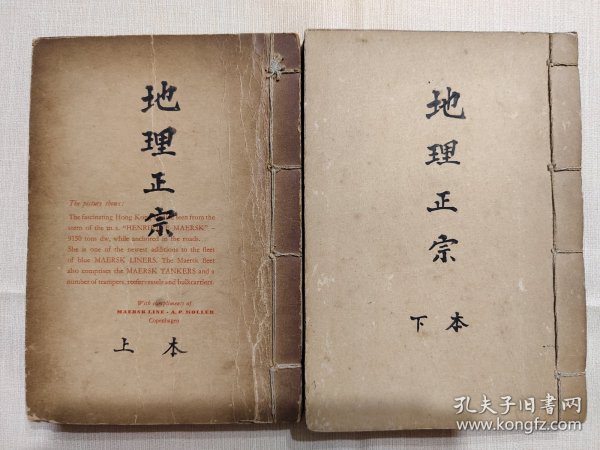 地理正宗
The picture shows:
The fascinating Hong Kong seen from the
stern of the m.s. "HENRIETTE MAERSK" –
9150 tons dw, while anchored in the roads.
She is one of the newest additions to the fleet
of blue MAERSK LINERS. The Maersk fleet
also comprises the MAERSK TANKERS and a
number of trampers, reefervessels and bulkcarriers.
With compliments of
MAERSK LINE · A. P. MOLLER
Copenhagen
上本
地理正宗
下本
孔夫子旧书网
www.kongfz.com